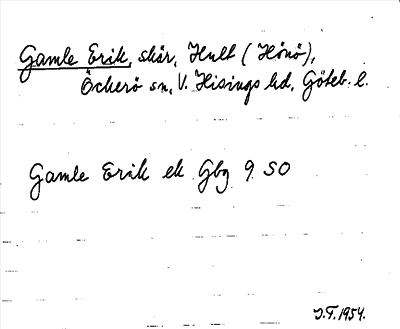 Gamle Erik, skär, Hult (Hönö),
Öckerö sn, V. Hisings hd, Göteb. l.
Gamle Erik ek Gbg 9 SO
J.F. 1954.